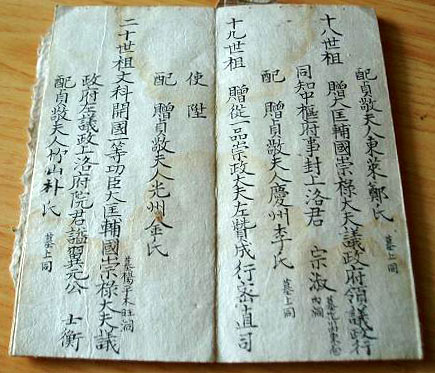 配貞敬夫人東萊鄭氏 墓上同
十八世祖 贈大匡輔國崇祿大夫議政府領議政行
同知中樞府事封上洛君 宗淑
配 贈貞敬夫人慶州李氏 墓上同
十九世祖 贈從一品崇政大夫左贊成行密直司
使 陞
配 贈貞敬夫人光州金氏
二十世祖文科開國一等功臣大匡輔國崇祿大夫議
政府左議政上洛府院君諡翼元公 士衡
配貞敬夫人竹山朴氏 墓上同